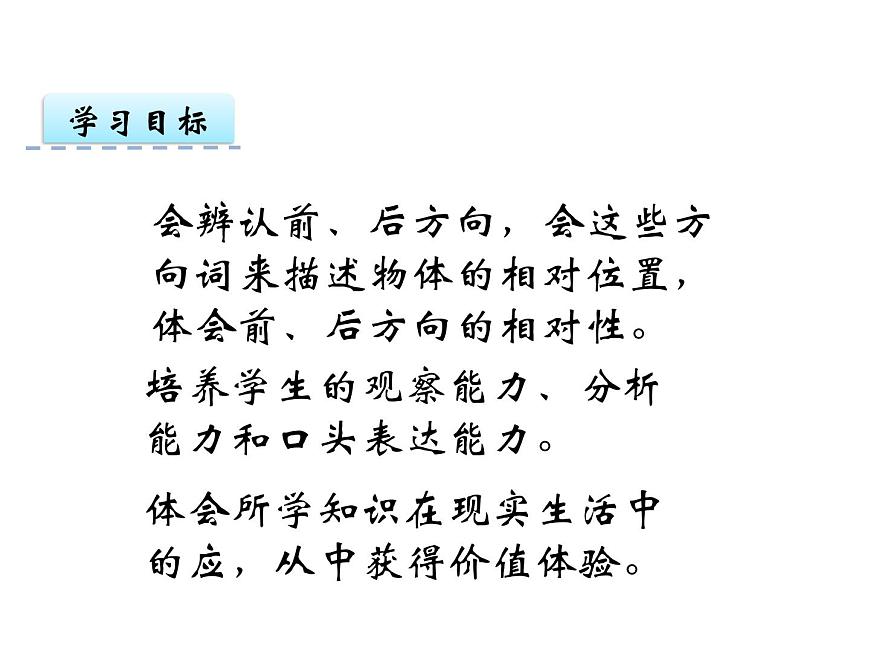 学习目标
会辨认前、后方向，会这些方
向词来描述物体的相对位置，
体会前、后方向的相对性。
培养学生的观察能力、分析
能力和口头表达能力。
体会所学知识在现实生活中
的应，从中获得价值体验。